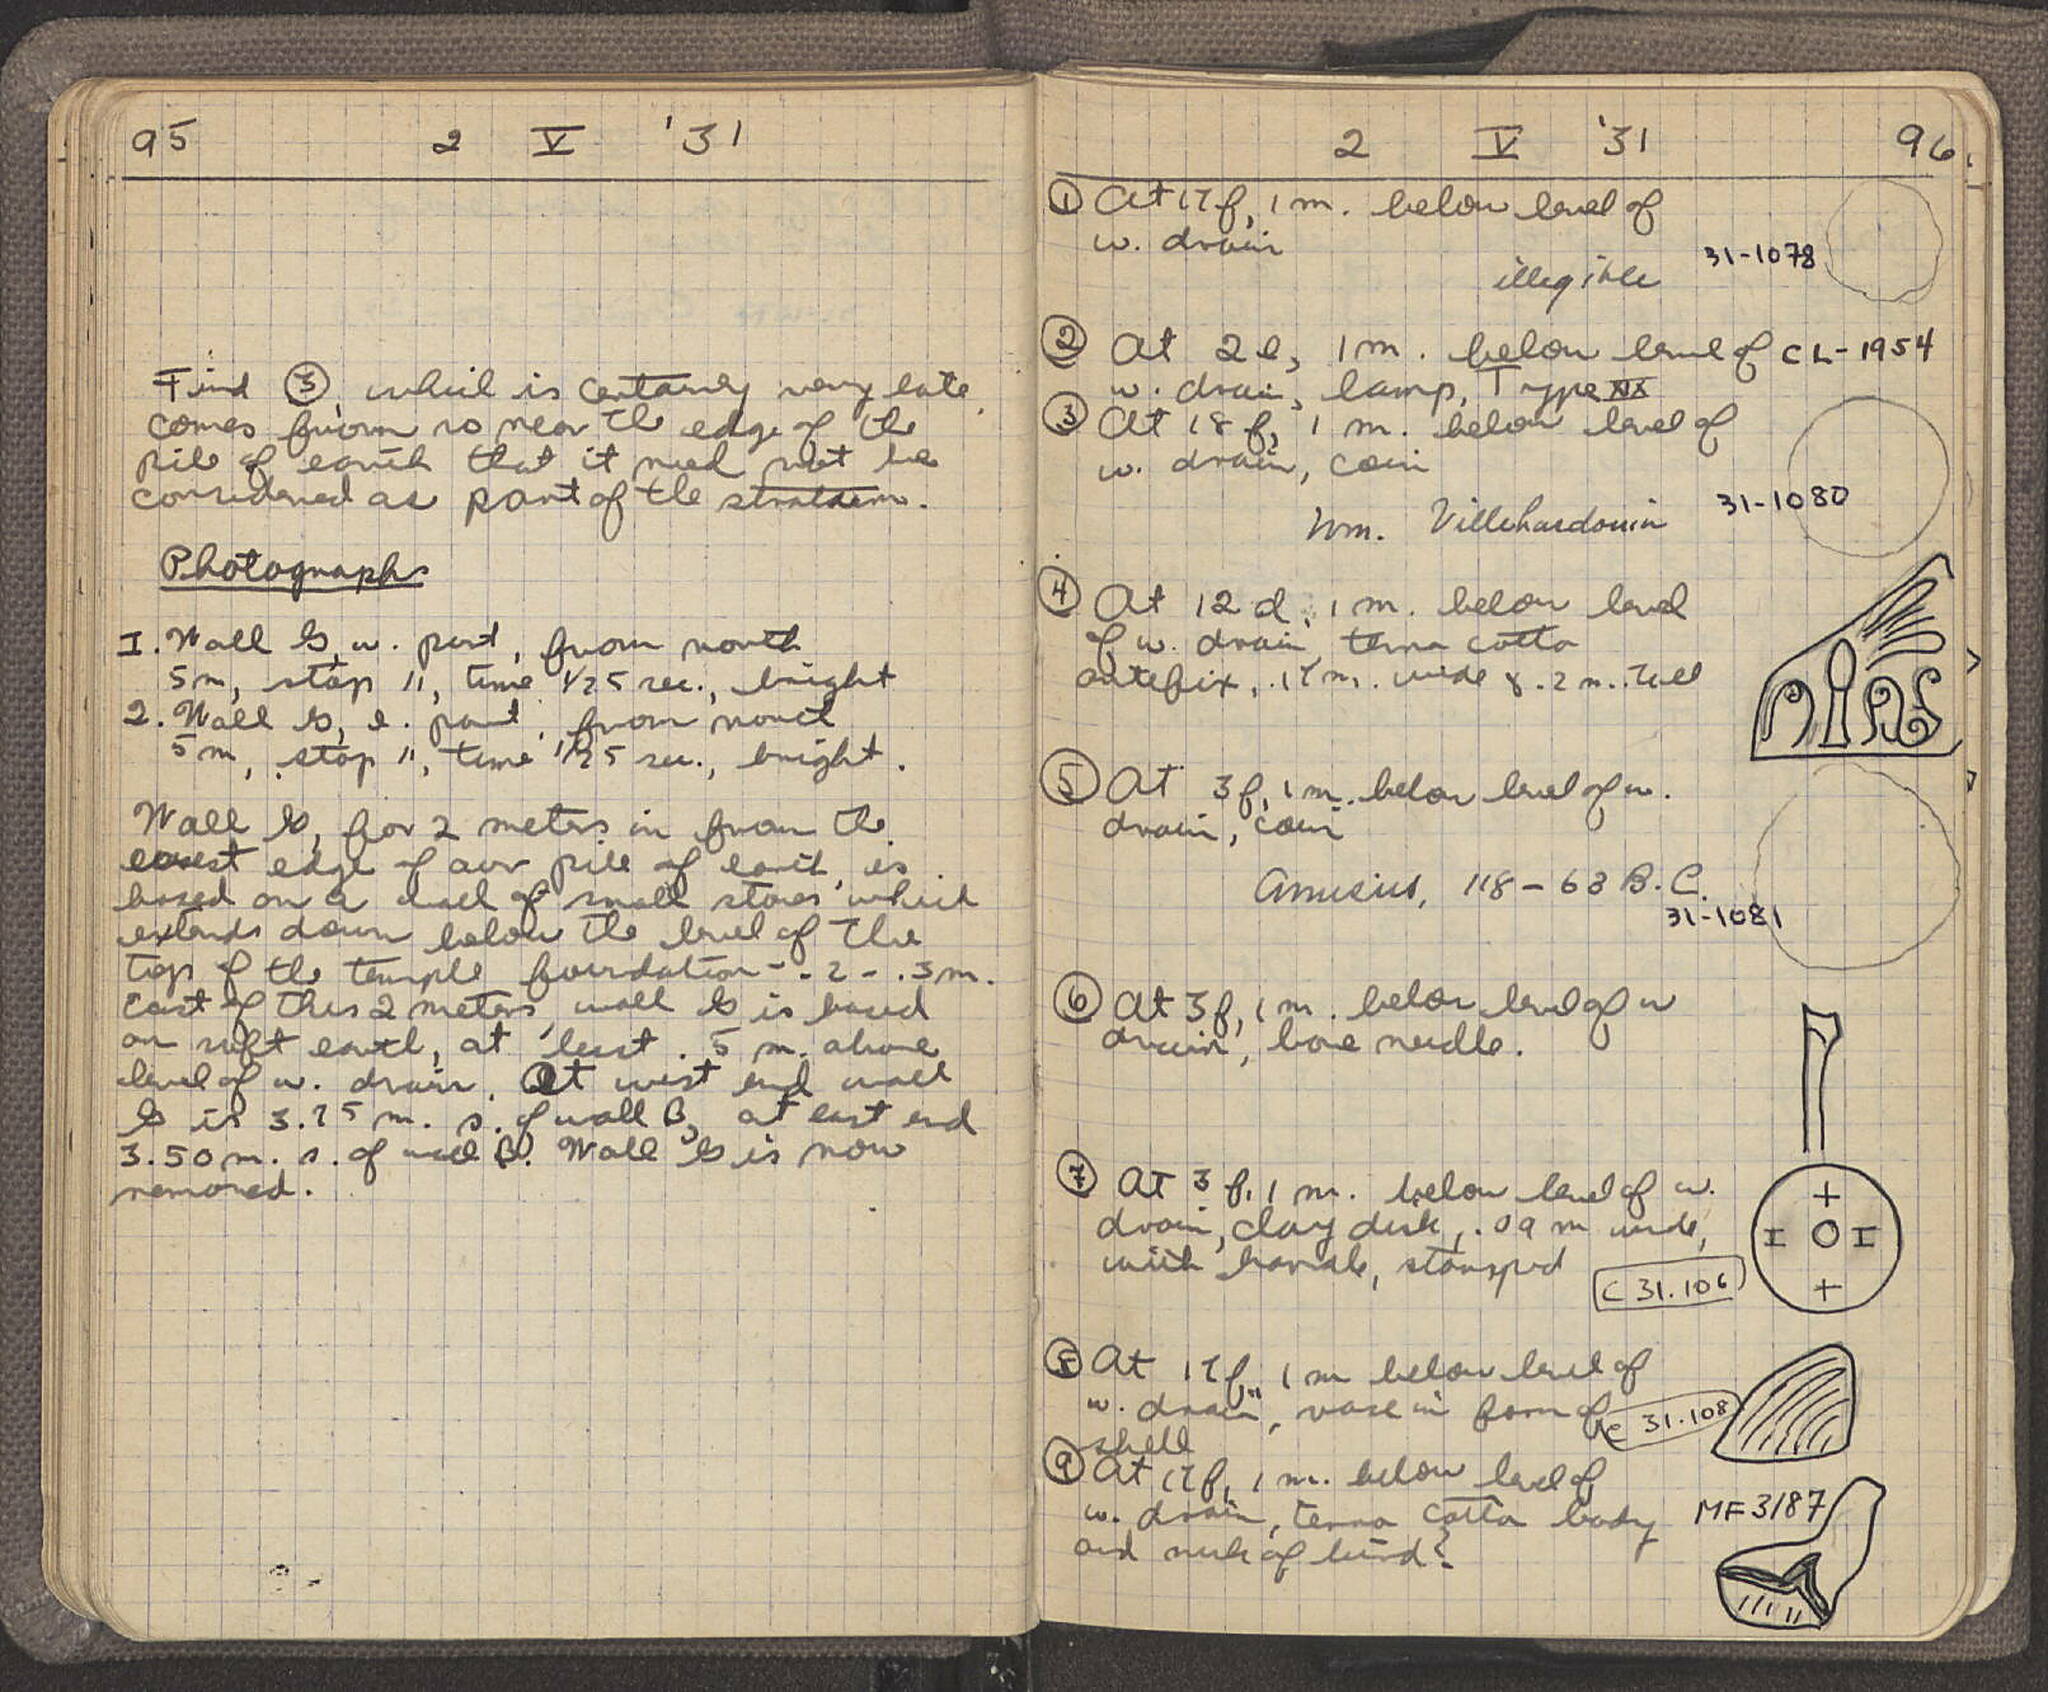 95 2 V '31
Find ③, which is certainly very late,
comes from so near the edge of the
pile of earth that it need not be
considered as part of the stratum.
Photographs
1. Wall G, w. part, from north
5m, stop 11, time 1/25 sec., bright
2. Wall G, e. part, from north
5m, stop 11, time 1/25 sec., bright.
Wall G, for 2 meters in from the
west edge of our pile of earth, is
based on a wall of small stones which
extends down below the level of the
top of the temple foundation - .2 - .3m.
East of this 2 meters, wall G is based
on soft earth, at least .5 m. above
level of w. drain. At west end wall
G is 3.75 m. s. of wall B, at east end
3.50 m. s. of wall B. Wall G is now
removed.
2 V '31 96.
① At 17f, 1 m. below level of
w. drain
illegible 31-1078
② At 2e, 1m. below level of CL-1954
w. drain, lamp, Type XX
③ At 18f, 1 m. below level of
w. drain, coin
Wm. Villehardouin 31-1080
④ At 12d, 1 m. below level
of w. drain, terra cotta
antefix, .17m. wide & .2 m. tall
⑤ At 3f, 1m. below level of w.
drain, coin
Amisus, 118-63 B.C.
31-1081
⑥ At 3f, 1m. below level of w
drain, bone needle.
⑦ At 3f, 1m. below level of w.
drain, clay disk, .09 m wide,
with handle, stamped
C 31.106
+
I O I
+
⑧ At 17f, 1m below level of
w. drain, vase in form of
shell
C 31.108
⑨ At 17f, 1m. below level of
w. drain, terra cotta body
and neck of bird?
MF 3187